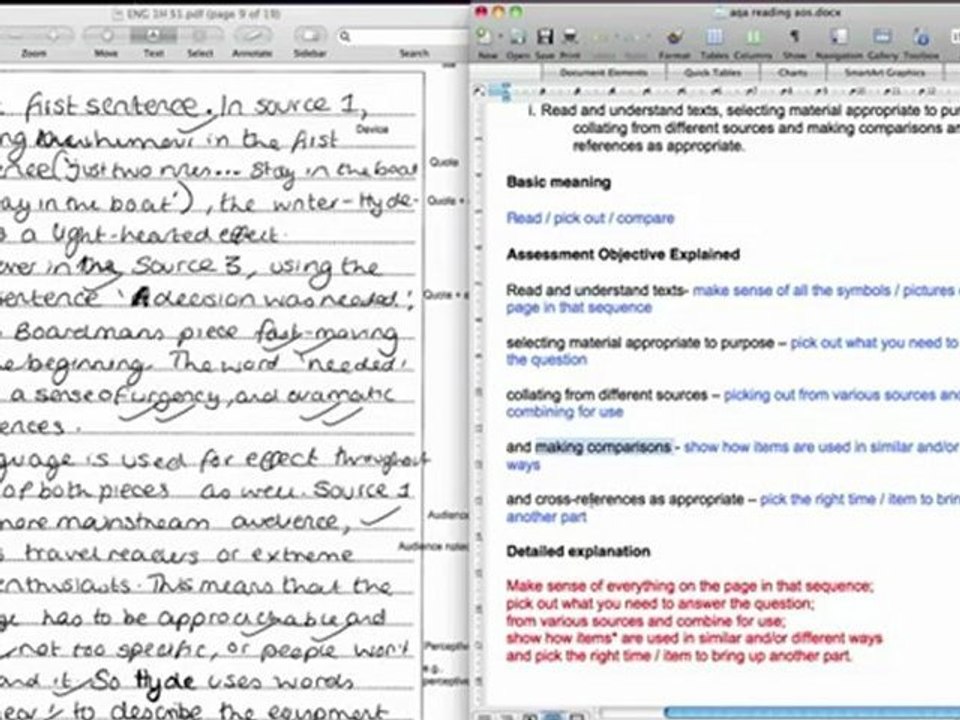 ENG 1H S1.pdf (page 9 of 19)
Zoom Move Text Select Annotate Sidebar Search
first sentence. In source 1,
humour in the first
Device
('just two rules... Stay in the boat
Quote
in the boat'), the writer - Hyde-
Quote +
a light-hearted effect.
in the Source 3, using the
sentence 'A decision was needed.'
Quote +
Boardmans piece fast-moving
beginning. The word 'needed'
a sense of urgency, and dramatic
is used for effect throughout
of both pieces as well. Source 1
more mainstream audience,
Audience
travel readers or extreme
Audience noted
enthusiasts. This means that the
has to be approachable and
not too specific, or people won't
e.g.
and it. So Hyde uses words
to describe the equipment
aqa reading aos.docx
New Open Save Print Format Tables Columns Show Navigation Gallery Toolbox
Document Elements Quick Tables Charts SmartArt Graphics
i. Read and understand texts, selecting material appropriate to
collating from different sources and making comparisons
references as appropriate.
Basic meaning
Read / pick out / compare
Assessment Objective Explained
Read and understand texts- make sense of all the symbols / pictures
page in that sequence
selecting material appropriate to purpose – pick out what you need to
the question
collating from different sources – picking out from various sources
combining for use
and making comparisons - show how items are used in similar and/or
ways
and cross-references as appropriate – pick the right time / item to
another part
Detailed explanation
Make sense of everything on the page in that sequence;
pick out what you need to answer the question;
from various sources and combine for use;
show how items* are used in similar and/or different ways
and pick the right time / item to bring up another part.